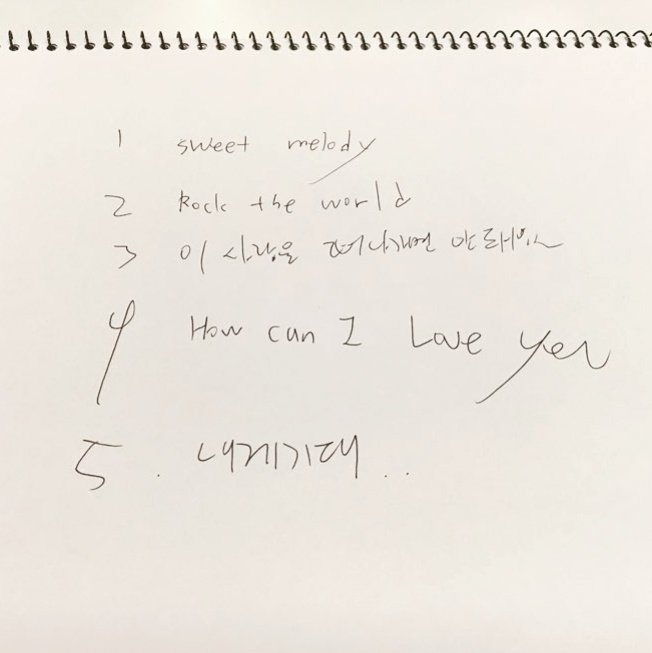 1 sweet melody
2 Rock the world
3 이 사랑을 떠나가면
4 How can I Love you
5. 내게기대..